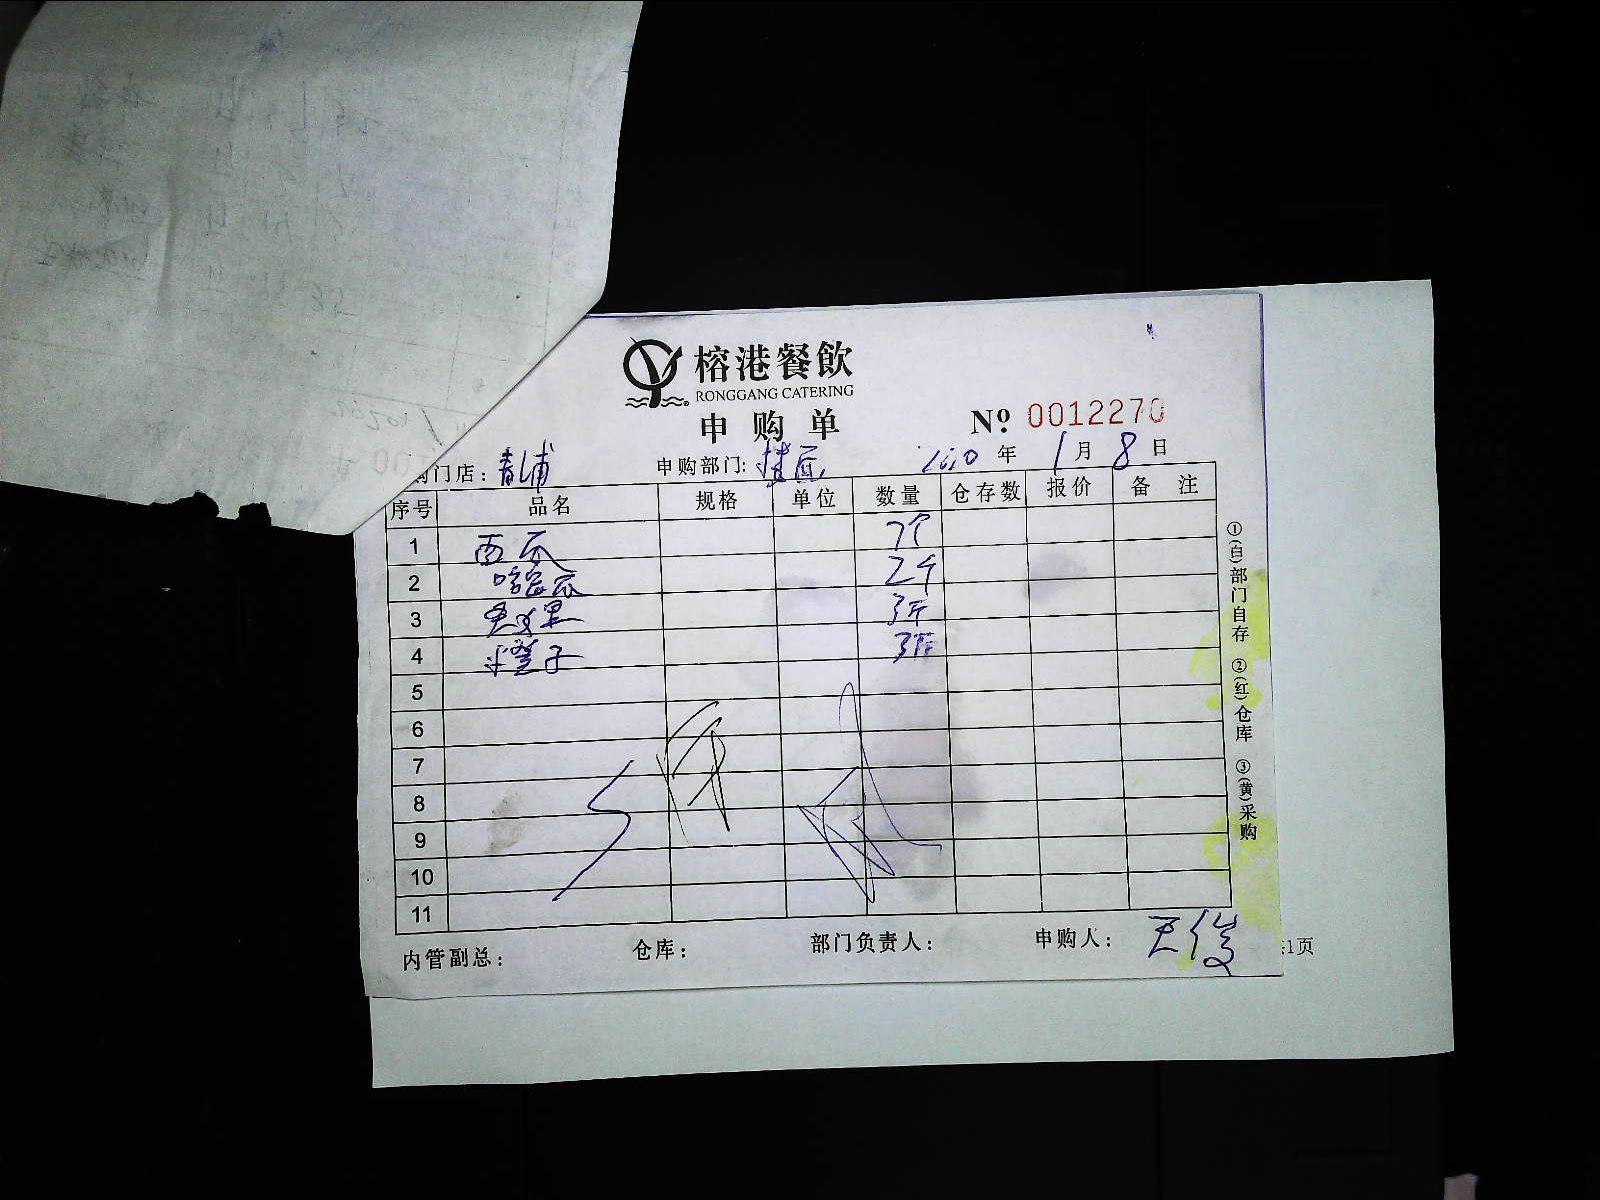 榕港餐飲
RONGGANG CATERING
申购单
Nº 0012270
门店：青浦 申购部门： 年 1月8日
序号 品名 规格 单位 数量 仓存数 报价 备注
1 西瓜 7个
2 哈密瓜 2个
3 3斤
4 橙子 3斤
5
6
7
8
9
10
11
内管副总： 仓库： 部门负责人： 申购人：王俊
①(白)部门自存 ②(红)仓库 ③(黄)采购
1页